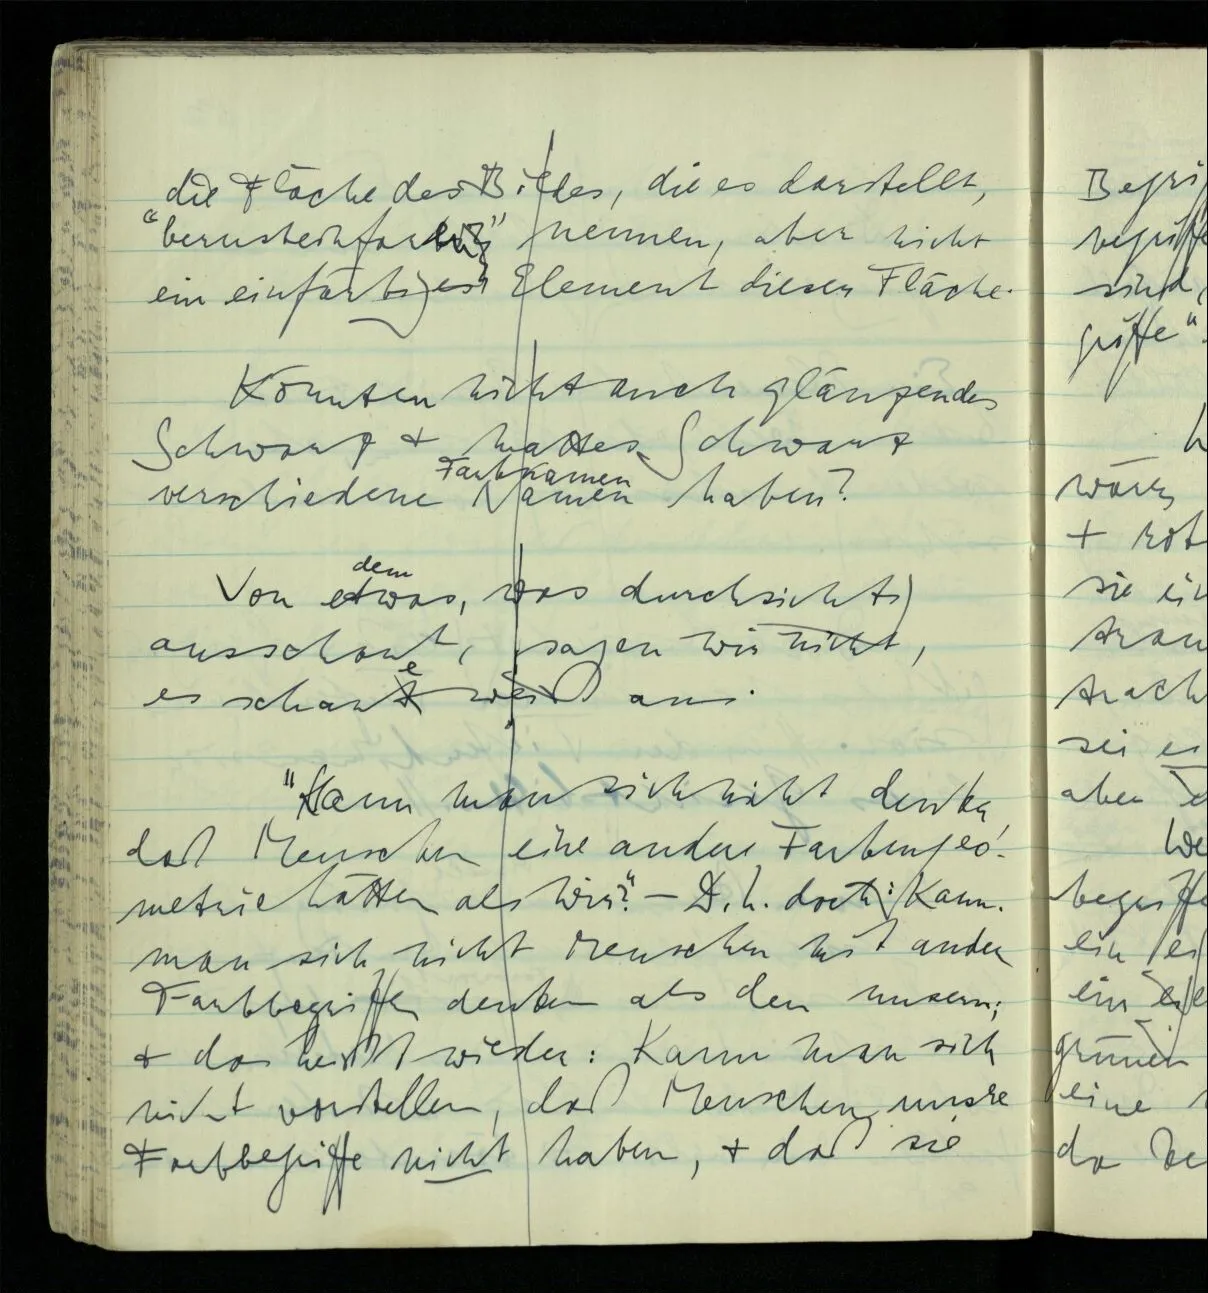 die Fläche des Bildes, die es darstellt,
"bernsteinfarbig" nennen, aber nicht
ein einfärbiges Element dieser Fläche.
Könnten nicht auch glänzendes
Schwarz + mattes Schwarz
Farbnamen
verschiedene Namen haben?
dem
Von etwas, was durchsichtig
ausschaut, sagen wir nicht,
e
es schaut weiß aus.
"Kann man sich nicht denken
daß Menschen eine andere Farbengeo-
metrie hätten als wir?" – D.h. doch: Kann
man sich nicht Menschen mit andern
Farbbegriffen denken als den unsern;
+ das heißt wieder: Kann man sich
nicht vorstellen, daß Menschen unsre
Farbbegriffe nicht haben, + daß sie
Begri
begriffe
sind,
griffe"
wären
+ rot
sie ein
sei es
aber
We
begriffe
ein
ein
grünen
eine
da